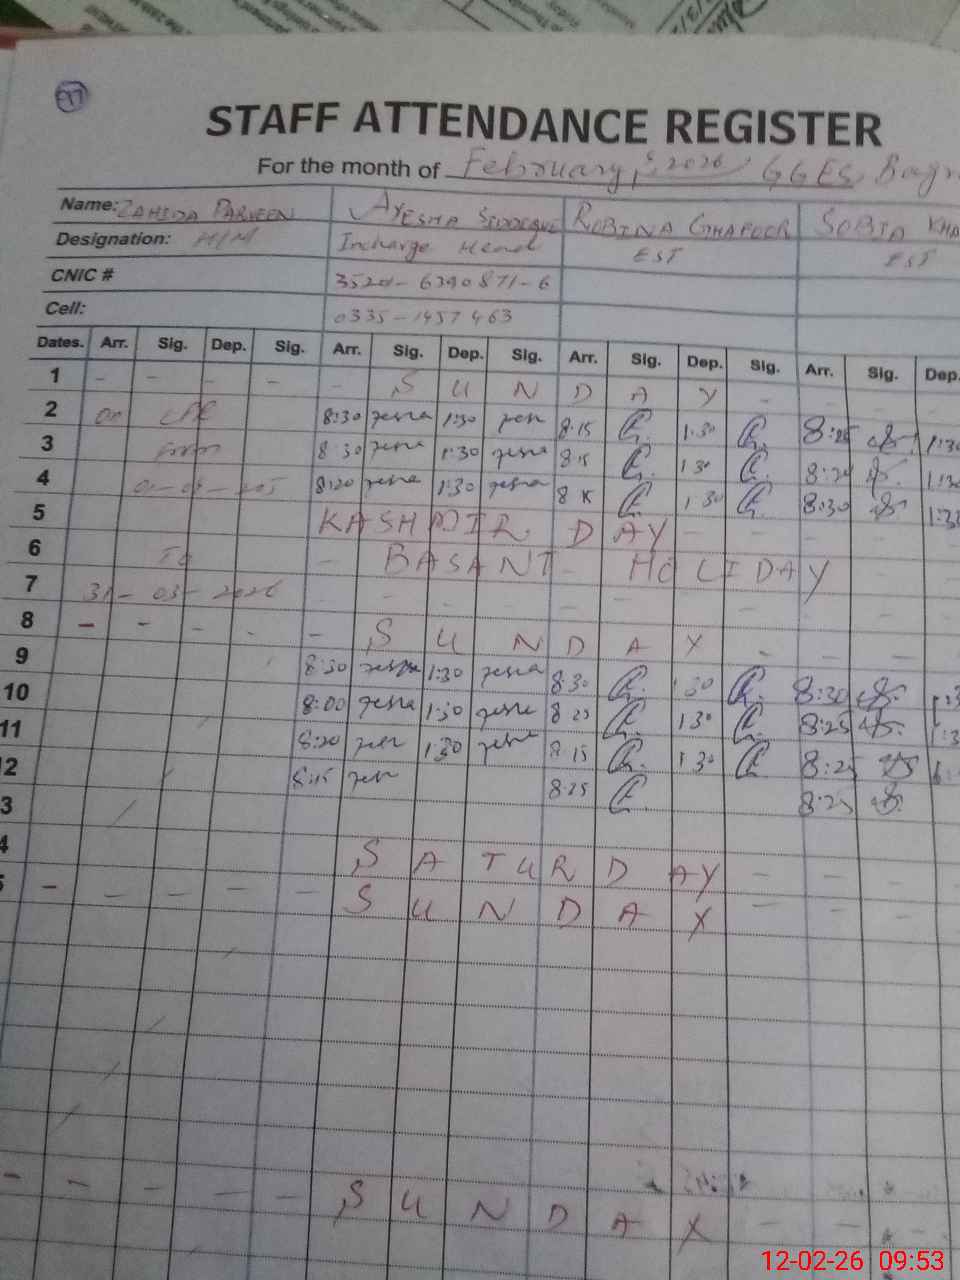 97
STAFF ATTENDANCE REGISTER
For the month of February, 2026 GGES
Name: ZAHIDA PARVEEN AYESHA SIDDEQUE ROBINA GHAFOOR SOBIA KHA
Designation: H/M Incharge Head EST EST
CNIC # 35201-6390871-6
Cell: 0335-1457463
Dates. Arr. Sig. Dep. Sig. Arr. Sig. Dep. Sig. Arr. Sig. Dep. Sig. Arr. Sig. Dep.
1 - - - - - S U N D A Y - - -
2 On LPR 8:30 1:30 8:15 1:30 8:25 1:30
3 from 8:30 1:30 8:15 1:30 8:25 1:30
4 8:20 1:30 8:15 1:30 8:30 1:30
5 KASHMIR DAY - - - -
6 To - BASANT HOLIDAY - -
7 31-03-2026 - - - - - - -
8 - - - - - S U N D A Y - - -
9 8:30 1:30 8:30 1:30 8:30
10 8:00 1:30 8:25 1:30 8:25
11 8:20 1:30 8:15 1:30 8:25
12 8:15 8:25 8:25
3
4 S A T U R D A Y - - - -
5 - - - - - S U N D A Y - - - -
- - - - - S U N D A Y - - -
12-02-26 09:53